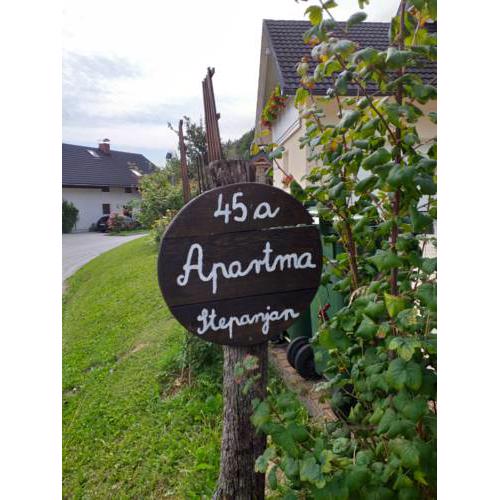 45a
Apartma
Stepanjan